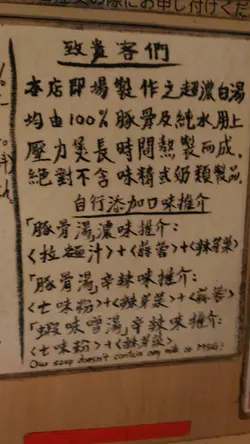 際にお申し付けくだ
致貴客們
本店即場製作之超濃白湯
均由100%豚骨及純水用上
壓力煲長時間熬製而成,
絕對不含味精或奶類製品.
自行添加口味推介
「豚骨湯」濃味推介:
<拉麵汁>+<蒜蓉>+<辣芽菜>
「豚骨湯」辛辣味推介:
<七味粉>+<辣芽菜>+<蒜蓉>
「蝦味噌湯」辛辣味推介:
<七味粉>+<辣芽菜>
Our soup doesn't contain any milk or MSG!